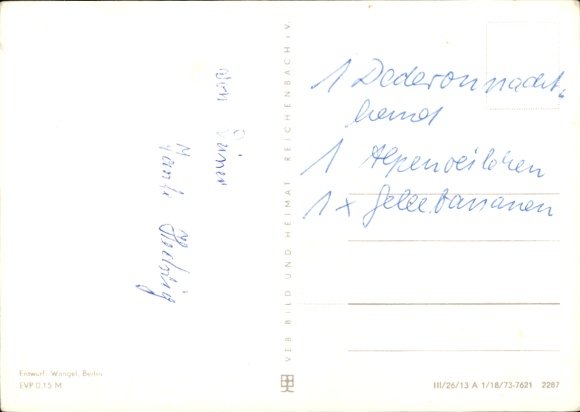 von Deiner
Hedwig
VEB BILD UND HEIMAT REICHENBACH i.V.
1 Dederonnacht-
hemd
1 Alpenveilchen
1 x Geleebananen
Entwurf: Wengel, Berlin
EVP 0.15 M
III/26/13 A 1/18/73-7621 2287